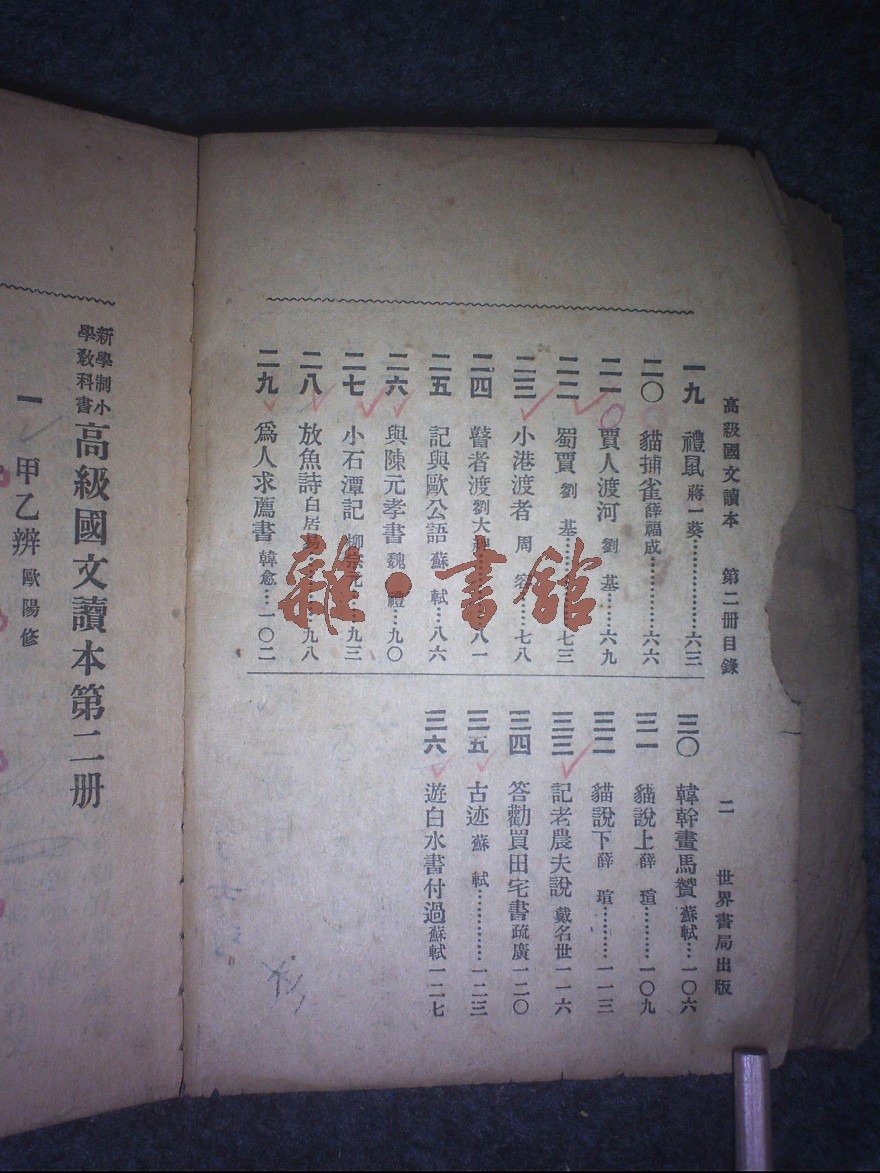 高級國文讀本 第二册目錄 二 世界書局出版
一九 禮鼠 蔣一葵…………六三
二〇 貓捕雀 薛福成…………六六
二一 賈人渡河 劉基…六九
二二 蜀賈 劉基…………七三
二三 小港渡者 周容…七八
二四 瞽者渡 劉大…八一
二五 記與歐公語 蘇軾…八六
二六 與陳元孝書 魏禮…九〇
二七 小石潭記 柳宗元…九三
二八 放魚詩 白居易…九八
二九 爲人求薦書 韓愈…一〇二
三〇 韓幹畫馬贊 蘇軾…一〇六
三一 貓說上 薛瑄…………一〇九
三二 貓說下 薛瑄…………一一三
三三 記老農夫說 戴名世 一一六
三四 答勸買田宅書 疏廣 一二〇
三五 古迹 蘇軾…………一二三
三六 遊白水書付過 蘇軾 一二七
雜·書館
新學制小學教科書 高級國文讀本第二册
一 甲乙辨 歐陽修